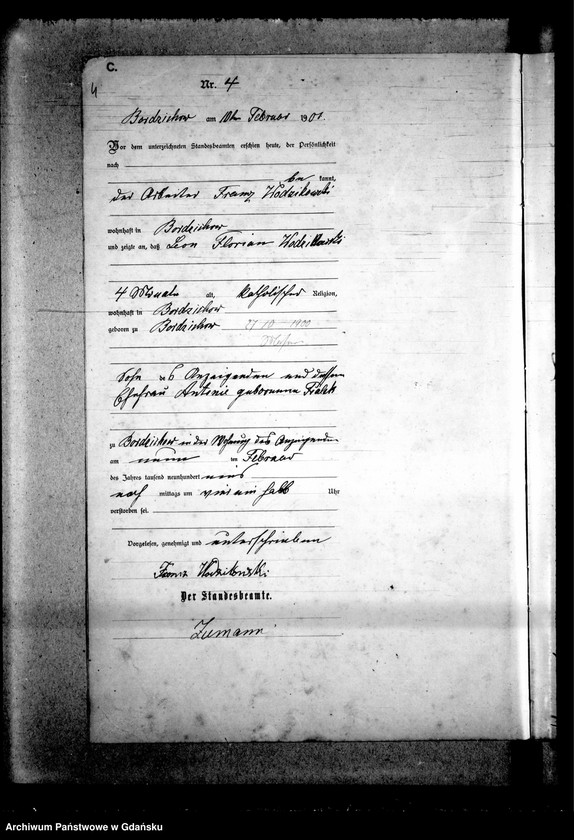 C.
4
Nr. 4
Bordzichow am 10ten Februar 1901.
Vor dem unterzeichneten Standesbeamten erschien heute, der Persönlichkeit
nach
be kannt,
der Arbeiter Franz Wodzikowski
wohnhaft in Bordzichow
und zeigte an, daß Leon Florian Wodzikowski
4 Monate alt, katholischer Religion,
wohnhaft in Bordzichow
geboren zu Bordzichow 27 10 1900
Sohn des Anzeigenden und dessen
Ehefrau Antonie geborenen
zu Bordzichow in der Wohnung des Anzeigenden
am neun ten Februar
des Jahres tausend neunhundert eins
nach mittags um vier ein halb Uhr
verstorben sei.
Vorgelesen, genehmigt und unterschrieben
Franz Wodzikowski
Der Standesbeamte.
Ziemann
Archiwum Państwowe w Gdańsku